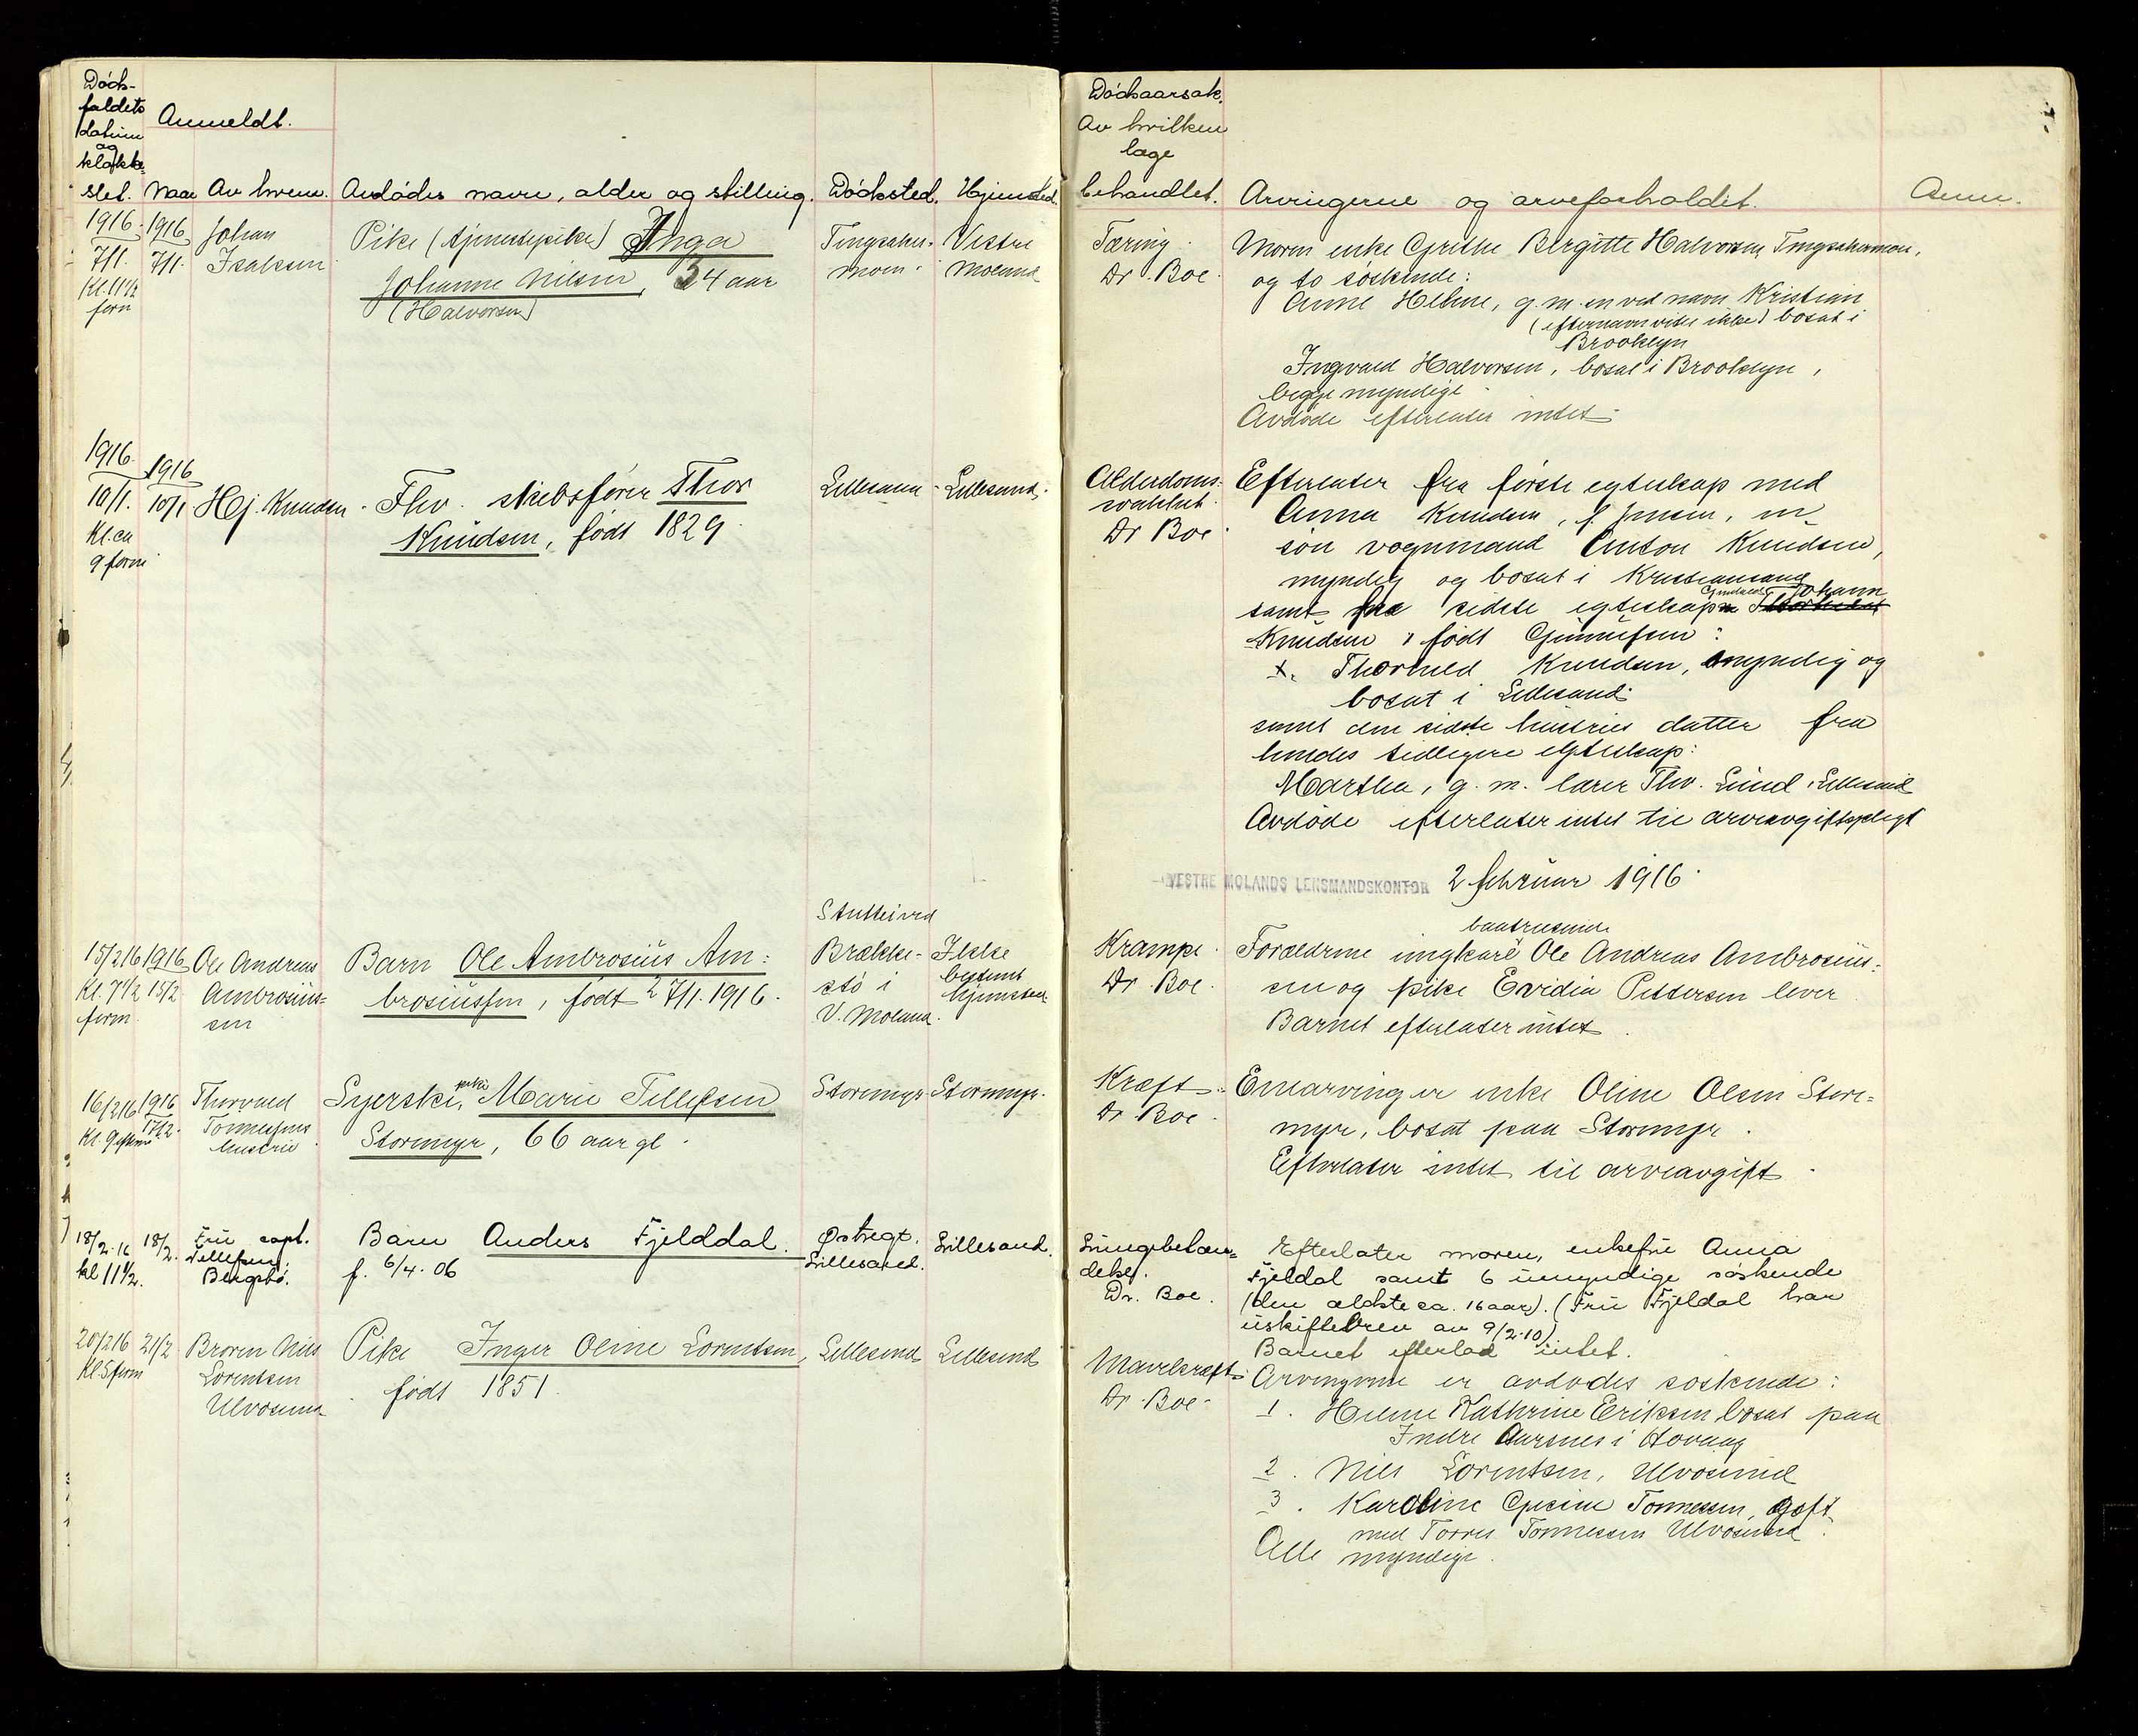 Døds-
faldets
datum
og
klokke-
slet.
Anmeldt.
Naar Av hvem.
Avdødes navn, alder og stilling.
Dødssted.
Hjemsted.
Dødsaarsak.
Av hvilken
læge
behandlet.
Arvingerne og arveforholdet.
Anm.
1916
7/1.
Kl. 11½
form
1916
7/1.
Johan
Isaksen
Pike (tjenestepike) Inga
Johanne Nilsen, 34 aar
(Halvorsen)
Tingsaker-
moen.
Vestre
Moland
Tæring.
Dr. Boe.
Moren enke Grethe Birgitte Halvorsen, Tingsakermoen,
og to søskende:
Anne Helene, g. m. en ved navn Kristian
(efternavn vites ikke) bosat i
Brooklyn
Ingvald Halvorsen, bosat i Brooklyn,
begge myndige.
Avdøde efterlater intet.
1916.
10/1.
Kl. ca
9 form.
1916
10/1.
Hj. Knudsen.
Fhv. skibsfører Thor
Knudsen, født 1829.
Lillesand.
Lillesand.
Alderdoms-
svakhet.
Dr Boe.
Efterlater fra første egteskap med
Anna Knudsen, f. Jensen, en
søn vognmand Anton Knudsen,
myndig og bosat i Kristiansand
samt fra sidste egteskap Johann
Knudsen, født Gunnufsen:
Thorvald Knudsen, myndig og
bosat i Lillesand.
samt den sidste hustrues datter fra
hendes tidligere egteskap:
Martha, g. m. lærer Thv. Lund, Lillesand
Avdøde efterlater intet til arveavgiftspligt
VESTRE MOLANDS LENSMANDSKONTOR 2 februar 1916.
15/2 16
Kl. 7½
form.
1916
15/2
Ole Andreas
Ambrosius-
sen
Barn Ole Ambrosius Am-
brosiussen, født 27/1. 1916.
Brække-
stø i
V. Moland.
Ikke
bestemt
hjemsted.
Krampe.
Dr Boe.
Forældrene ungkarl Ole Andreas Ambrosius-
sen og pike Evidia Pettersen lever.
Barnet efterlater intet.
16/2 16
Kl. 9 efterm
1916
17/2.
Thorvald
Tønnesens
hustru
Syerske, pike Marie Tellefsen
Stormyr, 66 aar gl.
Stormyr.
Stormyr.
Kræft.
Dr. Boe.
Enearving er enke Oline Olsen Stor-
myr, bosat paa Stormyr.
Efterlater intet til arveavgift.
18/2. 16
kl 11½.
18/2.
Fru capt.
Tellefsen,
Bergstø.
Barn Anders Fjelddal.
f. 6/4. 06
Østregt.
Lillesand.
Lillesand.
Lungebetæn-
delse.
Dr. Boe.
Efterlater moren, enkefru Anna
Fjeldal samt 6 umyndige søskende
(den ældste ca. 16 aar). (Fru Fjeldal har
uskiftebrev av 9/2.10).
Barnet efterlod intet.
20/2 16
Kl. 5 form
21/2
Broren Nils
Lorentsen
Ulvøsund
Pike Inger Oline Lorentsen,
født 1851.
Lillesand
Lillesand
Mavekræft.
Dr. Boe.
Arvingerne er avdødes søskende:
1. Helene Kathrine Eriksen, bosat paa
Indre Aarsnes i Høvaag
2. Nils Lorentsen, Ulvøsund
3. Karoline Gesine Tønnessen, gift
med Torres Tønnessen Ulvøsund.
Alle myndige.